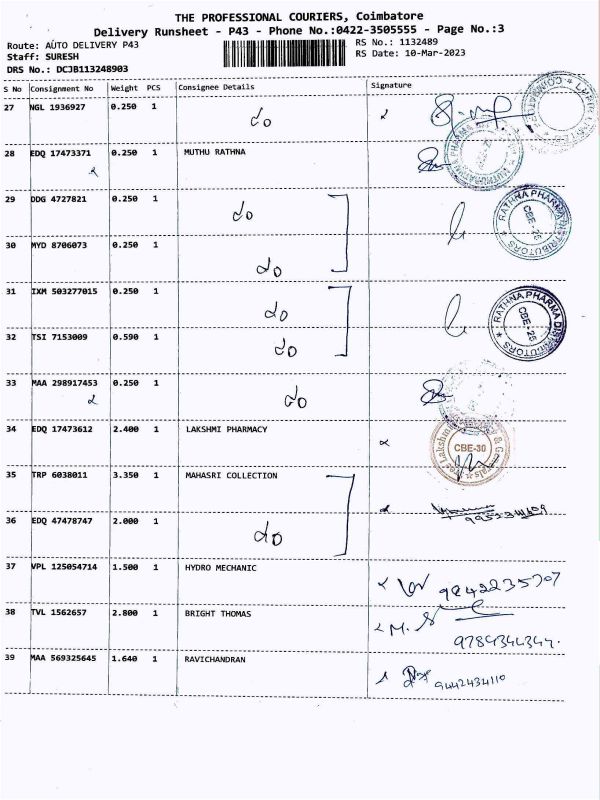 THE PROFESSIONAL COURIERS, Coimbatore
Delivery Runsheet - P43 - Phone No.:0422-3505555 - Page No.:3
Route: AUTO DELIVERY P43 RS No.: 1132489
Staff: SURESH RS Date: 10-Mar-2023
DRS No.: DCJB113248903
S No Consignment No Weight PCS Consignee Details Signature
27 NGL 1936927 0.250 1
28 EDQ 17473371 0.250 1 MUTHU RATHNA
29 DDG 4727821 0.250 1
RATHNA PHARMA DISTRIBUTORS CBE-25
30 MYD 8706073 0.250 1
31 IXM 503277015 0.250 1
RATHNA PHARMA DISTRIBUTORS CBE-25
32 TSI 7153009 0.590 1
33 MAA 298917453 0.250 1
34 EDQ 17473612 2.400 1 LAKSHMI PHARMACY
CBE-30
35 TRP 6038011 3.350 1 MAHASRI COLLECTION
36 EDQ 47478747 2.000 1
37 VPL 125054714 1.500 1 HYDRO MECHANIC
9842235707
38 TVL 1562657 2.800 1 BRIGHT THOMAS
M.
9789344344.
39 MAA 569325645 1.640 1 RAVICHANDRAN
9442434110